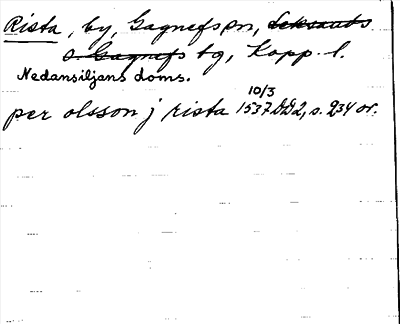 Rista, by, Gagnefs sn, Leksands
o. Gagnefs tg, Kopp. l.
Nedansiljans doms.
10/3
per olsson j rista 1537 DD2, s. 234 or.